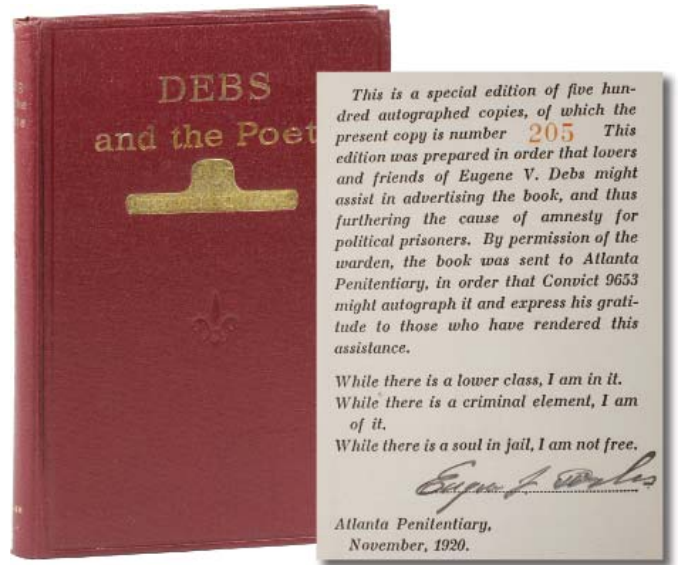 DEBS
and the Poets
This is a special edition of five hun-
dred autographed copies, of which the
present copy is number 205 This
edition was prepared in order that lovers
and friends of Eugene V. Debs might
assist in advertising the book, and thus
furthering the cause of amnesty for
political prisoners. By permission of the
warden, the book was sent to Atlanta
Penitentiary, in order that Convict 9653
might autograph it and express his grati-
tude to those who have rendered this
assistance.
While there is a lower class, I am in it.
While there is a criminal element, I am
of it.
While there is a soul in jail, I am not free.
Eugene V. Debs
Atlanta Penitentiary,
November, 1920.